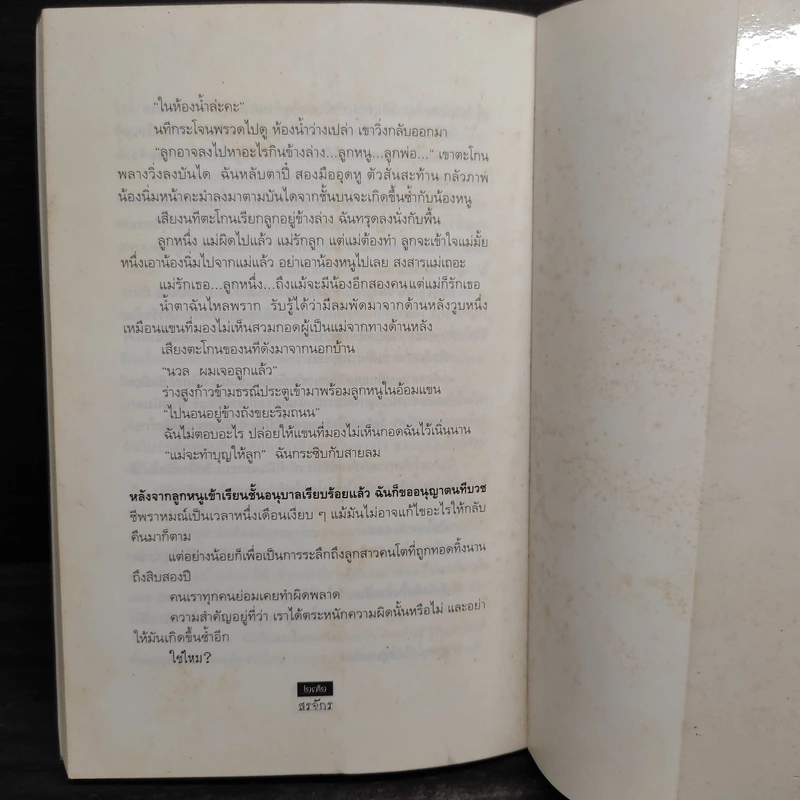 “ในห้องน้ำล่ะคะ”
นทีกระโจนพรวดไปดู ห้องน้ำว่างเปล่า เขาวิ่งกลับออกมา
“ลูกอาจลงไปหาอะไรกินข้างล่าง...ลูกหนู...ลูกพ่อ...” เขาตะโกน
พลางวิ่งลงบันได ฉันหลับตาปี๋ สองมืออุดหู ตัวสั่นสะท้าน กลัวภาพ
น้องนิ่มหน้าคะมำลงมาตามบันไดจากชั้นบนจะเกิดขึ้นซ้ำกับน้องหนู
เสียงนทีตะโกนเรียกลูกอยู่ข้างล่าง ฉันทรุดลงนั่งกับพื้น
ลูกหนึ่ง แม่ผิดไปแล้ว แม่รักลูก แต่แม่ต้องทำ ลูกจะเข้าใจแม่มั้ย
หนึ่งเอาน้องนิ่มไปจากแม่แล้ว อย่าเอาน้องหนูไปเลย สงสารแม่เถอะ
แม่รักเธอ...ลูกหนึ่ง...ถึงแม้จะมีน้องอีกสองคนแต่แม่ก็รักเธอ
น้ำตาฉันไหลพราก รับรู้ได้ว่ามีลมพัดมาจากด้านหลังวูบหนึ่ง
เหมือนแขนที่มองไม่เห็นสวมกอดผู้เป็นแม่จากทางด้านหลัง
เสียงตะโกนของนทีดังมาจากนอกบ้าน
“นวล ผมเจอลูกแล้ว”
ร่างสูงก้าวข้ามธรณีประตูเข้ามาพร้อมลูกหนูในอ้อมแขน
“ไปนอนอยู่ข้างถังขยะริมถนน”
ฉันไม่ตอบอะไร ปล่อยให้แขนที่มองไม่เห็นกอดฉันไว้เนิ่นนาน
“แม่จะทำบุญให้ลูก” ฉันกระซิบกับสายลม
หลังจากลูกหนูเข้าเรียนชั้นอนุบาลเรียบร้อยแล้ว ฉันก็ขออนุญาตนทีบวช
ชีพราหมณ์เป็นเวลาหนึ่งเดือนเงียบ ๆ แม้มันไม่อาจแก้ไขอะไรให้กลับ
คืนมาก็ตาม
แต่อย่างน้อยก็เพื่อเป็นการระลึกถึงลูกสาวคนโตที่ถูกทอดทิ้งนาน
ถึงสิบสองปี
คนเราทุกคนย่อมเคยทำผิดพลาด
ความสำคัญอยู่ที่ว่า เราได้ตระหนักความผิดนั้นหรือไม่ และอย่า
ให้มันเกิดขึ้นซ้ำอีก
ใช่ไหม?
สรจักร